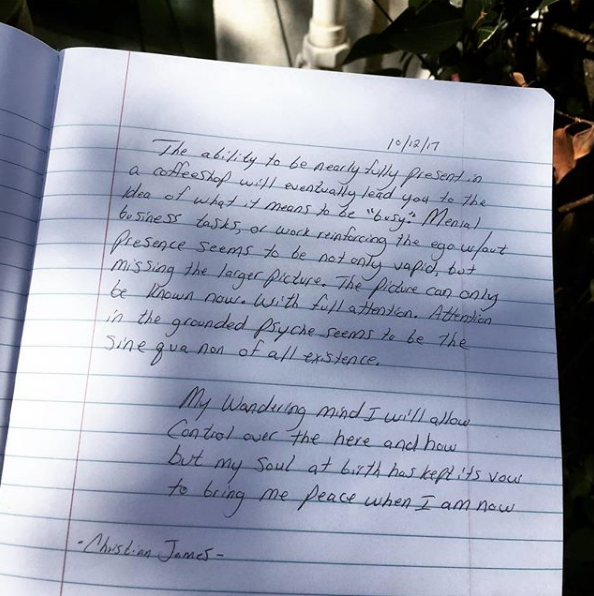 10/12/17
The ability to be nearly fully present in
a coffeeshop will eventually lead you to the
idea of what it means to be "busy". Menial
business tasks, or work reinforcing the ego w/out
presence seems to be not only vapid, but
missing the larger picture. The picture can only
be known now. With full attention. Attention
in the grounded psyche seems to be the
sine qua non of all existence.
My wandering mind I will allow
Control over the here and how
but my soul at birth has kept its vow
to bring me peace when I am now
-Christian James-